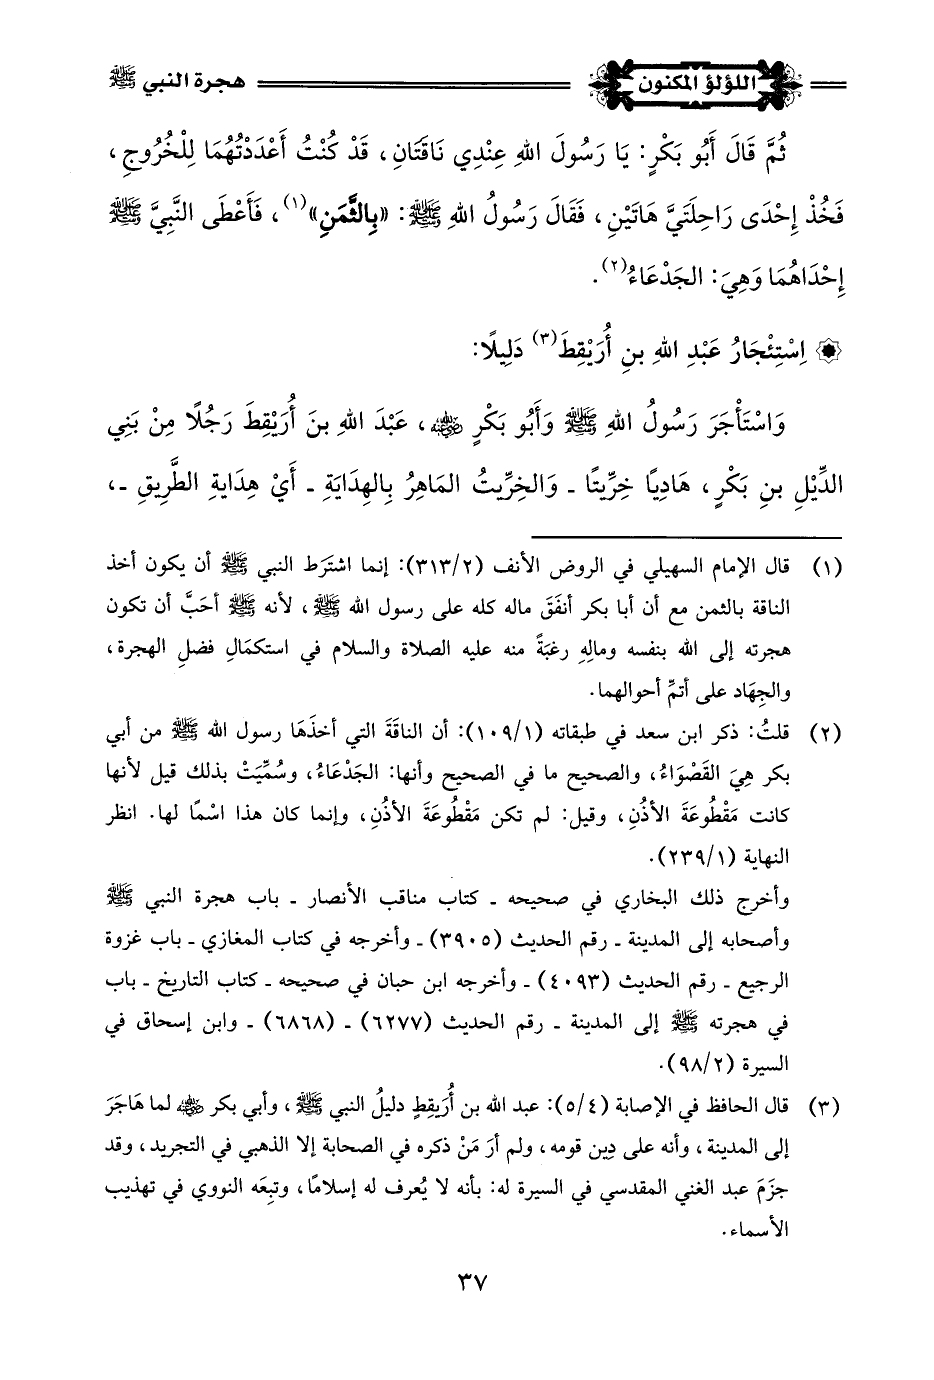 هجرة النبي ﷺ اللؤلؤ المكنون
ثُمَّ قَالَ أَبُو بَكْرٍ: يَا رَسُولَ اللهِ عِنْدِي نَاقَتَانِ، قَدْ كُنْتُ أَعْدَدْتُهُمَا لِلْخُرُوجِ،
فَخُذْ إِحْدَى رَاحِلَتَيَّ هَاتَيْنِ، فَقَالَ رَسُولُ اللهِ ﷺ: «بِالثَّمَنِ»(١)، فَأَعْطَى النَّبِيَّ ﷺ
إِحْدَاهُمَا وَهِيَ: الجَدْعَاءُ(٢).
۞ اِسْتِئْجَارُ عَبْدِ اللهِ بنِ أُرَيْقِطَ(٣) دَلِيلًا:
وَاسْتَأْجَرَ رَسُولُ اللهِ ﷺ وَأَبُو بَكْرٍ ﵁، عَبْدَ اللهِ بنَ أُرَيْقِطَ رَجُلًا مِنْ بَنِي
الدِّيْلِ بنِ بَكْرٍ، هَادِيًا خِرِّيتًا ـ وَالخِرِّيتُ المَاهِرُ بِالهِدَايَةِ ـ أَيْ هِدَايةِ الطَّرِيقِ ـ،
(١) قال الإمام السهيلي في الروض الأنف (٣١٣/٢): إنما اشتَرط النبي ﷺ أن يكون أخذ
الناقة بالثمن مع أن أبا بكر أنفَقَ ماله كله على رسول الله ﷺ، لأنه ﷺ أحَبَّ أن تكون
هجرته إلى الله بنفسه ومالِهِ رغبَةً منه عليه الصلاة والسلام في استكمَالِ فضلِ الهجرة،
والجِهَاد على أتمِّ أحوالهما.
(٢) قلتُ: ذكر ابن سعد في طبقاته (١٠٩/١): أن الناقَةَ التي أخذَهَا رسول الله ﷺ من أبي
بكر هِيَ القَصْوَاءُ، والصحيح ما في الصحيح وأنها: الجَدْعَاءُ، وسُمِّيَتْ بذلك قيل لأنها
كانت مَقْطُوعَةَ الأذُنِ، وقيل: لم تكن مَقْطُوعَةَ الأذُنِ، وإنما كان هذا اسْمًا لها. انظر
النهاية (٢٣٩/١).
وأخرج ذلك البخاري في صحيحه ـ كتاب مناقب الأنصار ـ باب هجرة النبي ﷺ
وأصحابه إلى المدينة ـ رقم الحديث (٣٩٠٥) ـ وأخرجه في كتاب المغازي ـ باب غزوة
الرجيع ـ رقم الحديث (٤٠٩٣) ـ وأخرجه ابن حبان في صحيحه ـ كتاب التاريخ ـ باب
في هجرته ﷺ إلى المدينة ـ رقم الحديث (٦٢٧٧) ـ (٦٨٦٨) ـ وابن إسحاق في
السيرة (٩٨/٢).
(٣) قال الحافظ في الإصابة (٥/٤): عبد الله بن أُريقِطٍ دليلُ النبي ﷺ، وأبي بكر ﵁ لما هَاجَرَ
إلى المدينة، وأنه على دِين قومه، ولم أرَ مَنْ ذكره في الصحابة إلا الذهبي في التجريد، وقد
جزَمَ عبد الغني المقدسي في السيرة له: بأنه لا يُعرف له إسلامًا، وتبِعَه النووي في تهذيب
الأسماء.
٣٧